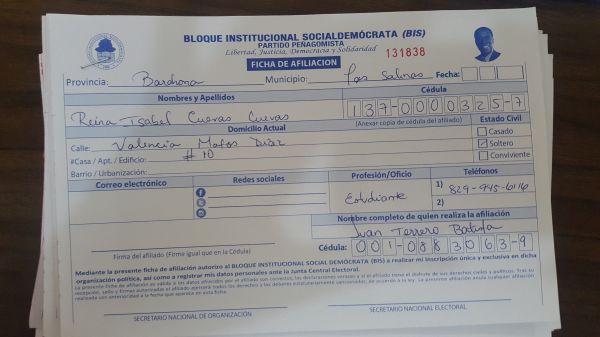 BLOQUE INSTITUCIONAL SOCIALDEMÓCRATA (BIS)
PARTIDO PEÑAGOMISTA
Libertad, Justicia, Democracia y Solidaridad
131838
FICHA DE AFILIACION
Provincia: Barahona Municipio: Las Salinas Fecha:
Nombres y Apellidos Cédula
Reina Isabel Cuevas Cuevas 137-0000325-7
Domicilio Actual (Anexar copia de cédula del afiliado) Estado Civil
Calle: Valencia Matos Diaz Casado
#Casa / Apt. / Edificio: #10 Soltero
Barrio / Urbanización: Conviviente
Correo electrónico Redes sociales Profesión/Oficio Teléfonos
Estudiante 1) 829-945-6116
2)
Nombre completo de quien realiza la afiliación
Juan Terrero Batista
Firma del afiliado (Firma igual que en la Cédula) Cédula: 001-0883063-9
Mediante la presente ficha de afiliación autorizo al BLOQUE INSTITUCIONAL SOCIAL DEMÓCRATA (BIS) a realizar mi inscripción única y exclusiva en dicha
organización política, así como a registrar mis datos personales ante la Junta Central Electoral.
SECRETARIO NACIONAL DE ORGANIZACIÓN SECRETARIO NACIONAL ELECTORAL